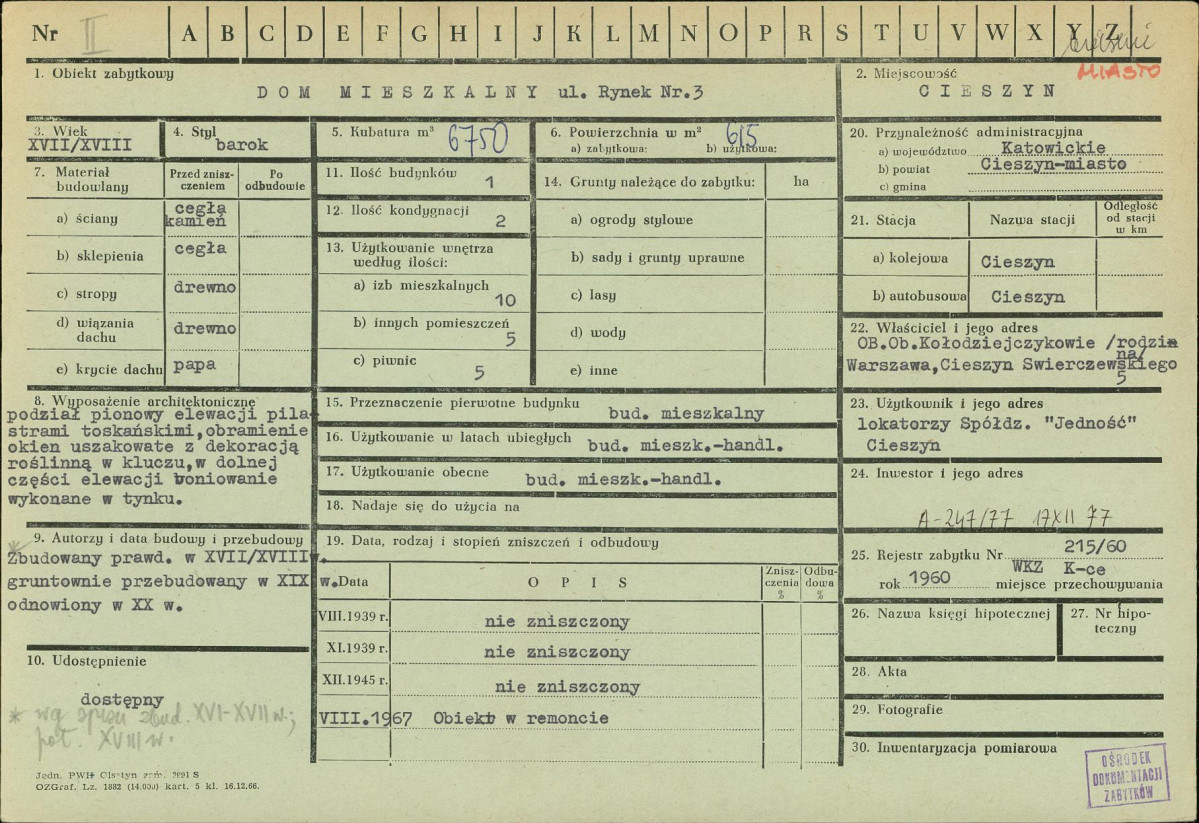 Nr II A B C D E F G H I J K L M N O P R S T U V W X Y Z
MIASTO
1. Obiekt zabytkowy
DOM MIESZKALNY ul. Rynek Nr.3
2. Miejscowość
CIESZYN
3. Wiek
XVII/XVIII
4. Styl
barok
5. Kubatura m³ 6750
6. Powierzchnia w m² 615
a) zabytkowa: b) użytkowa:
7. Materiał budowlany
Przed znisz-
czeniem
Po
odbudowie
a) ściany cegła
kamień
b) sklepienia cegła
c) stropy drewno
d) wiązania
dachu drewno
e) krycie dachu papa
11. Ilość budynków 1
12. Ilość kondygnacji 2
13. Użytkowanie wnętrza
według ilości:
a) izb mieszkalnych 10
b) innych pomieszczeń 5
c) piwnic 5
14. Grunty należące do zabytku: ha
a) ogrody stylowe
b) sady i grunty uprawne
c) lasy
d) wody
e) inne
20. Przynależność administracyjna
a) województwo Katowickie
b) powiat Cieszyn-miasto
c) gmina
21. Stacja Nazwa stacji Odległość
od stacji
w km
a) kolejowa Cieszyn
b) autobusowa Cieszyn
22. Właściciel i jego adres
OB.Ob.Kołodziejczykowie /rodzin
na/
Warszawa,Cieszyn Swierczewskiego
5
8. Wyposażenie architektoniczne
podział pionowy elewacji pila-
strami toskańskimi,obramienie
okien uszakowate z dekoracją
roślinną w kluczu,w dolnej
części elewacji boniowanie
wykonane w tynku.
15. Przeznaczenie pierwotne budynku bud. mieszkalny
16. Użytkowanie w latach ubiegłych bud. mieszk.-handl.
17. Użytkowanie obecne bud. mieszk.-handl.
18. Nadaje się do użycia na
23. Użytkownik i jego adres
lokatorzy Spółdz. "Jedność"
Cieszyn
24. Inwestor i jego adres
A-247/77 17 XII 77
9. Autorzy i data budowy i przebudowy
* Zbudowany prawd. w XVII/XVIII w.
gruntownie przebudowany w XIX w.
odnowiony w XX w.
19. Data, rodzaj i stopień zniszczeń i odbudowy
Data OPIS Znisz-
czenia
% Odbu-
dowa
%
VIII.1939 r. nie zniszczony
XI.1939 r. nie zniszczony
XII.1945 r. nie zniszczony
VIII.1967 Obiekt w remoncie
25. Rejestr zabytku Nr 215/60
WKZ K-ce
rok 1960 miejsce przechowywania
26. Nazwa księgi hipotecznej
27. Nr hipo-
teczny
28. Akta
29. Fotografie
30. Inwentaryzacja pomiarowa
10. Udostępnienie
dostępny
* wg spisu zbud. XVI-XVII w.;
poł. XVIII w.
Jedn. PWH Olsztyn zam. 2991 S
OZGraf. Lz. 1882 (14.000) kart. 5 kl. 16.12.66.
OŚRODEK
DOKUMENTACJI
ZABYTKÓW